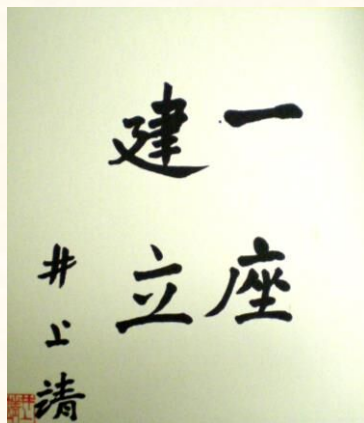 一座
建立
井上靖